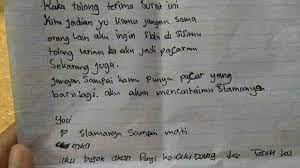 Kaka tolong terima surat ini
Kita jadian yu kamu jangan sama
orang lain aku ingin di sisimu
tolong terima ke aku jadi pacarmu
Sekarang juga.
Jangan sampai kamu punya pacar yang
baru lagi. aku akan mencintaimu Slamanya
Yuri
♡ Slamanya Sampai mati
aku besok akan Pergi ke